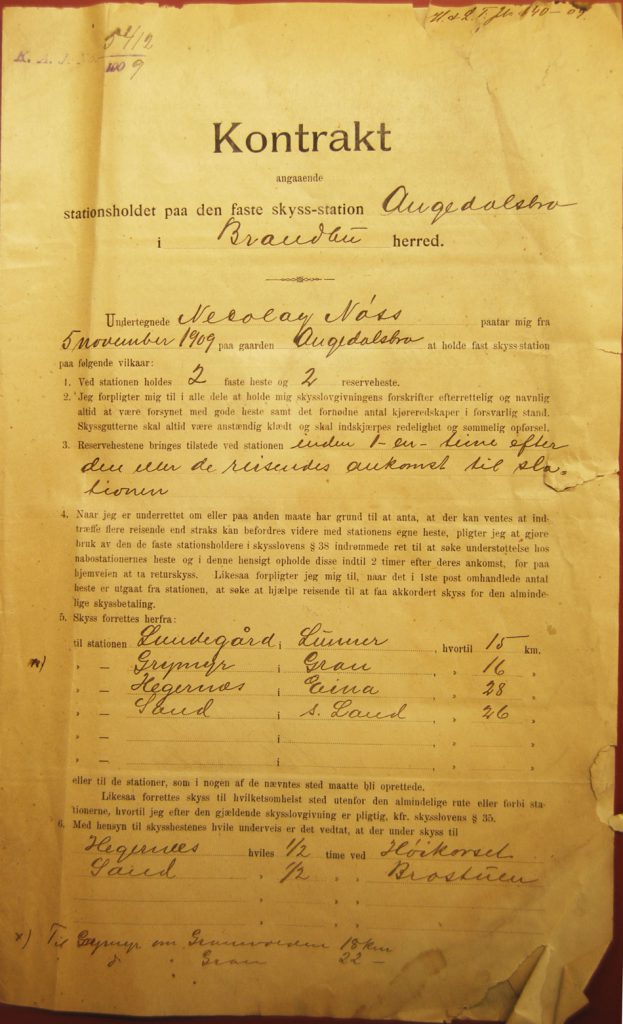 H & L. T. Jr 140-09.
K. A. J. No. 5412
1909
Kontrakt
angaaende
stationsholdet paa den faste skyss-station Augedalsbro
i Brandbu herred.
Undertegnede Necolay Nøss paatar mig fra
5 november 1909 paa gaarden Augedalsbro at holde fast skyss-station
paa følgende vilkaar:
1. Ved stationen holdes 2 faste heste og 2 reserveheste.
2. Jeg forpligter mig til i alle dele at holde mig skysslovgivningens forskrifter efterrettelig og navnlig
altid at være forsynet med gode heste samt det fornødne antal kjøreredskaper i forsvarlig stand.
Skyssgutterne skal altid være anstændig klædt og skal indskjærpes redelighet og sømmelig opførsel.
3. Reservehestene bringes tilstede ved stationen inden 1-en-time efter
den eller de reisendes ankomst til sta-
tionen
4. Naar jeg er underrettet om eller paa anden maate har grund til at anta, at der kan ventes at ind-
træffe flere reisende end straks kan befordres videre med stationens egne heste, pligter jeg at gjøre
bruk av den de faste stationsholdere i skysslovens § 38 indrømmede ret til at søke understøttelse hos
nabostationernes heste og i denne hensigt opholde disse indtil 2 timer efter deres ankomst, for paa
hjemveien at ta returskyss. Likesaa forpligter jeg mig til, naar det i 1ste post omhandlede antal
heste er utgaat fra stationen, at søke at hjælpe reisende til at faa akkordert skyss for den alminde-
lige skyssbetaling.
5. Skyss forrettes herfra:
til stationen Lundegård i Lunner hvortil 15 km.
x) „ — Grymyr i Gran „ 16 „
„ — Hegernæs i Eina „ 28 „
„ — Sand i s. Land „ 26 „
„ — i , „ „
„ — i , „ „
eller til de stationer, som i nogen af de nævntes sted maatte bli oprettede.
Likesaa forrettes skyss til hvilketsomhelst sted utenfor den almindelige rute eller forbi sta-
tionerne, hvortil jeg efter den gjældende skysslovgivning er pligtig, kfr. skysslovens § 35.
6. Med hensyn til skysshestenes hvile underveis er det vedtat, at der under skyss til
Hegernæs hviles 1/2 time ved Høikorset
Sand „ 1/2 „ „ Brostuen
x) Til Grymyr om Granvolden 18 km
„ Gran 22 —